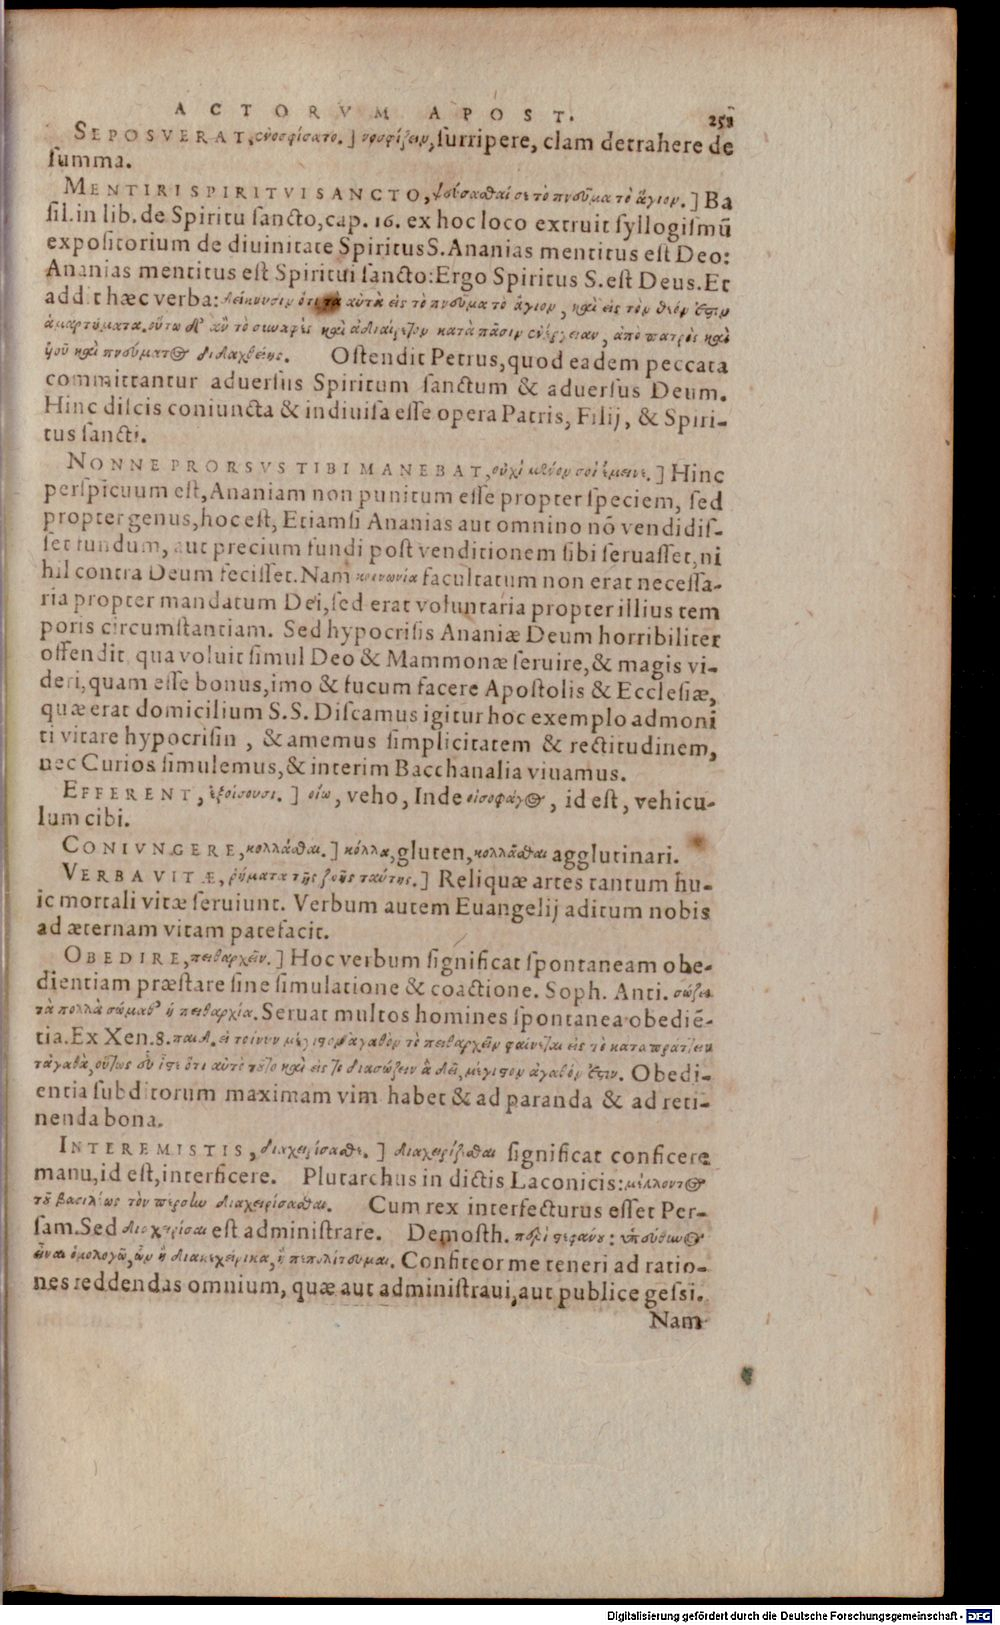 ACTORVM APOST. 251
SEPOSVERAT, ἐνοσφίσατο.] νοσφίζειν, ſurripere, clam detrahere de
ſumma.
MENTIRI SPIRITVI SANCTO, ψεύσασθαί σε τὸ πνεῦμα τὸ ἅγιον.] Ba
ſil. in lib. de Spiritu ſancto, cap. 16. ex hoc loco extruit ſyllogiſmũ
expoſitorium de diuinitate Spiritus S. Ananias mentitus eſt Deo:
Ananias mentitus eſt Spiritui ſancto: Ergo Spiritus S. eſt Deus. Et
addit hæc verba: δείκνυσιν ὅτι τὰ αὐτὰ εἰς τὸ πνεῦμα τὸ ἅγιον, καὶ εἰς τὸν θεόν ἐστιν
ἁμαρτήματα. οὕτω δ' ἂν τὸ συναφὲς καὶ ἀδιαίρετον κατὰ πᾶσιν ἐνέργειαν, ἀπὸ πατρὸς καὶ
ὑοῦ καὶ πνεύματος διδαχθείης. Oſtendit Petrus, quod eadem peccata
committantur aduerſus Spiritum ſanctum & aduerſus Deum.
Hinc diſcis coniuncta & indiuiſa eſſe opera Patris, Filij, & Spiri-
tus ſancti.
NONNE PRORSVS TIBI MANEBAT, οὐχὶ μένον σοὶ ἔμεινε.] Hinc
perſpicuum eſt, Ananiam non punitum eſſe propter ſpeciem, ſed
propter genus, hoc eſt, Etiamſi Ananias aut omnino nõ vendidiſ-
ſet fundum, aut precium fundi poſt venditionem ſibi ſeruaſſet, ni
hil contra Deum feciſſet. Nam κοινωνία facultatum non erat neceſſa-
ria propter mandatum Dei, ſed erat voluntaria propter illius tem
poris circumſtantiam. Sed hypocriſis Ananiæ Deum horribiliter
offendit, qua voluit ſimul Deo & Mammonæ ſeruire, & magis vi-
deri, quam eſſe bonus, imo & fucum facere Apoſtolis & Eccleſiæ,
quæ erat domicilium S. S. Diſcamus igitur hoc exemplo admoni
ti vitare hypocriſin, & amemus ſimplicitatem & rectitudinem,
nec Curios ſimulemus, & interim Bacchanalia viuamus.
EFFERENT, ἐξοίσουσι.] οἴω, veho, Inde οἰσοφάγος, id eſt, vehicu-
lum cibi.
CONIVNGERE, κολλᾶσθαι.] κόλλα, gluten, κολλᾶσθαι agglutinari.
VERBA VITÆ, ῥήματα τῆς ζωῆς ταύτης.] Reliquæ artes tantum hu-
ic mortali vitæ ſeruiunt. Verbum autem Euangelij aditum nobis
ad æternam vitam patefacit.
OBEDIRE, πειθαρχεῖν.] Hoc verbum ſignificat ſpontaneam obe-
dientiam præſtare ſine ſimulatione & coactione. Soph. Anti. σώζει
τὰ πολλὰ σώμαθ' ἡ πειθαρχία. Seruat multos homines ſpontanea obediẽ-
tia. Ex Xen. 8. παιδ. εἰ τοίνυν μέγιστον ἀγαθὸν τὸ πειθαρχεῖν φαίνεται εἰς τὸ καταπράττειν
τἀγαθὰ, οὕτως εὖ ἴστε ὅτι αὐτὸ τοῦτο καὶ εἰς τὸ διασώζειν ἃ δεῖ, μέγιστον ἀγαθόν ἐστιν. Obedi-
entia ſubditorum maximam vim habet & ad paranda & ad reti-
nenda bona.
INTEREMISTIS, διαχειρίσασθε.] διαχειρίζεσθαι ſignificat conficere
manu, id eſt, interficere. Plutarchus in dictis Laconicis: μέλλοντος
τοῦ βασιλέως τὸν πέρσην διαχειρίσασθαι. Cum rex interfecturus eſſet Per-
ſam. Sed διαχειρίσαι eſt adminiſtrare. Demoſth. περὶ στεφάνου: ὑπεύθυνος
εἶναι ὁμολογῶ, ὧν ἢ διακεχείρικα, ἢ πεπολίτευμαι. Confiteor me teneri ad ratio-
nes reddendas omnium, quæ aut adminiſtraui, aut publice geſsi.
Nam
Digitalisierung gefördert durch die Deutsche Forschungsgemeinschaft - DFG